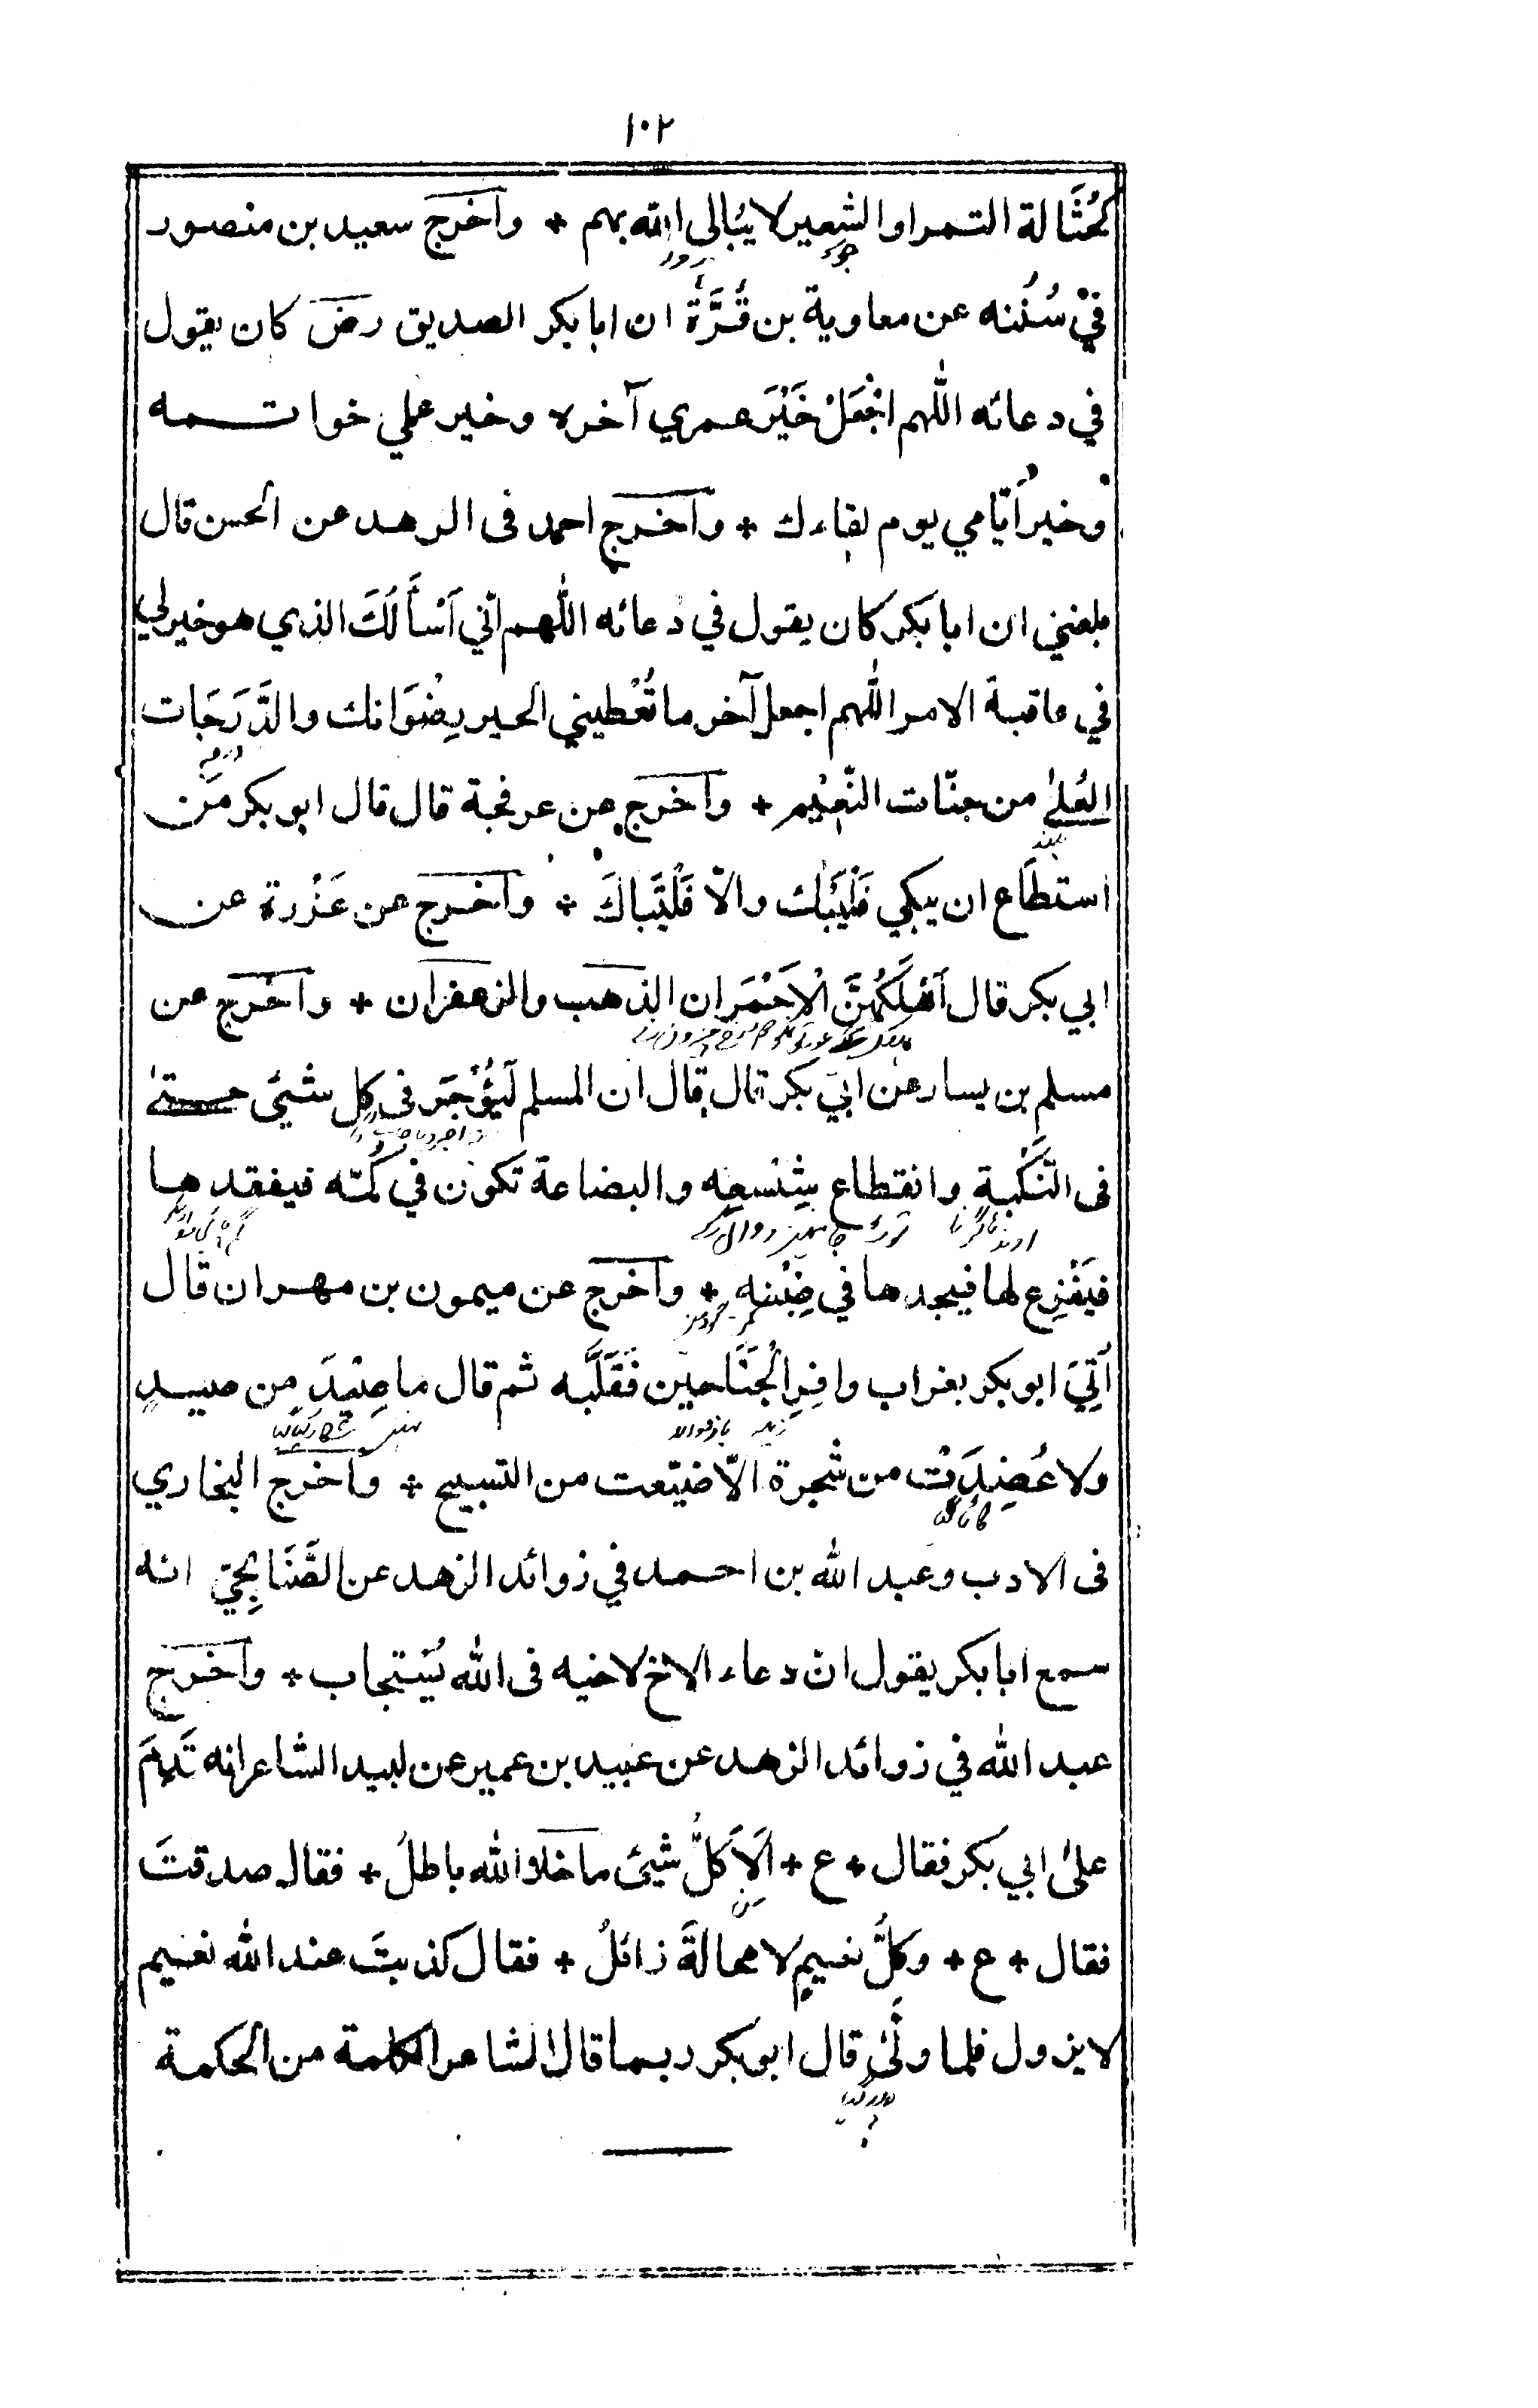 ١٠٢
كحُثَالة التمر او الشعير لا يُبالى الله بهم + وآخرج سعيد بن منصور
فيْ سُنَنه عن معاوية بن قُرَّة ان ابا بكر الصديق رض كان يقول
في دعائه اللهم اجْعَلْ خَيْرَ عمري آخره وخير عملي خواتمه
وخيرُ اَيّامي يوم لقاءك + وآخرج احمد فى الزهد عن الحسن قال
بلغني ان ابا بكر كان يقول في دعائه اللهم انّي اَسْأَلُكَ الذي هو خير لي
في عاقبة الامر اللهم اجعل آخر ما تُعْطيني الخير رِضْوَانك والدَّرَجَات
العُلىٰ من جنّات النّعِيْم + وآخرج عن عرفجة قال قال ابو بكر مَن
استطَاع ان يبكي فَلْيَبْك والاّ فَلْيَتَباكَ + وآخرج عن عَزْرة عن
ابي بكر قال اَهْلَكَهُنَّ الْاَحْمَرَان الذهَب والزعفرَان + وآخرج عن
مسلم بن يسار عن ابي بكر قال قال ان المسلم لَيُؤْجَر فى كل شيئ حتىٰ
فى النَّكْبة وانقطاع شِسْعِه والبضاعة تكون في كُمّه فيفقدها
فيَفْزِع لها فيجدها في ضِبْنه + وآخرج عن ميمون بن مهران قال
اُتِيَ ابو بكر بغراب وافِرِ الْجَنَاحين فَقَلَّبه ثم قال ما صِيْدَ مِن صيدٍ
ولا عُضِدَتْ من شجرة الاّ ضيّعت من التسبيح + وآخرج البخاري
فى الادب وعبد الله بن احمد في زوائد الزهد عن الصَّنَابِحِيّ انه
سمع ابا بكر يقول انّ دعاء الاخ لاخيه فى الله يُسْتجاب + وآخرج
عبد الله في زوائد الزهد عن عبيد بن عمير عن لبيد الشاعر انه قَدِمَ
علىٰ ابي بكر فقال + ع + اَلاَ كلُّ شيئ ما خلا الله باطلُ + فقال صدقتَ
فقال + ع + وكلُّ نعيمٍ لا محالةَ زائلُ + فقال كذبتَ عند الله نعيم
لا يزول فلما ولّٰى قال ابو بكر ربما قال الشاعر الكلمة من الحكمة